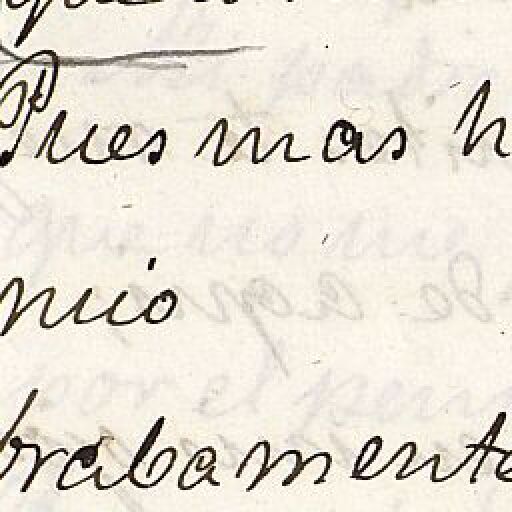 Pues mas h
mio
brabamente